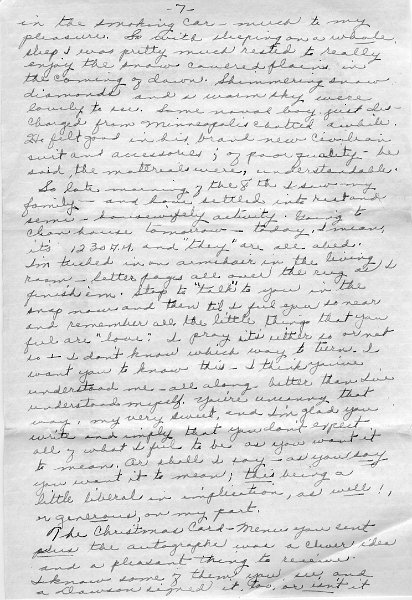 -7-
in the smoking car - much to my
pleasure. So with sleeping on a whole
sleep I was pretty much rested to really
enjoy the snow covered plains in
the coming of dawn. Shimmering snow
diamonds and a warm sky were
lovely to see. Some naval boy, just dis-
charged from Minneapolis chatted awhile.
He felt good in his brand new civilian
suit and accessories; of poor quality - he
said, the materials were, understandable.
So late morning of the 8th I saw my
family - and have settled into rest and
semi - housewifely activity. Going to
clean house tomorrow - today, I mean,
it's 1230 A.M. and "they" are all abed.
I'm tucked in an armchair in the living
room - letter pages all over the rug as I
finish 'em. Stop to "talk" to you in the
snap now and then til I feel you so near
and remember all the little things that you
feel are "love". I pray it's either so or not
so - I don't know which way to turn. I
want you to know this - I think you've
understood me - all along better than I've
understood myself. You're uncanny that
way, my very sweet, and I'm glad you
write and imply that you don't expect
all of what I feel to be as you want it
to mean. Or shall I say - as you say
you want it to mean; this being a
little liberal in implication, as well!,
or generous, on my part.
The Christmas Card - Menu you sent
plus the autographs was a clever idea
and a pleasant thing to receive.
I know some of them, you see, and
a Dawson signed it, too, or isn't it